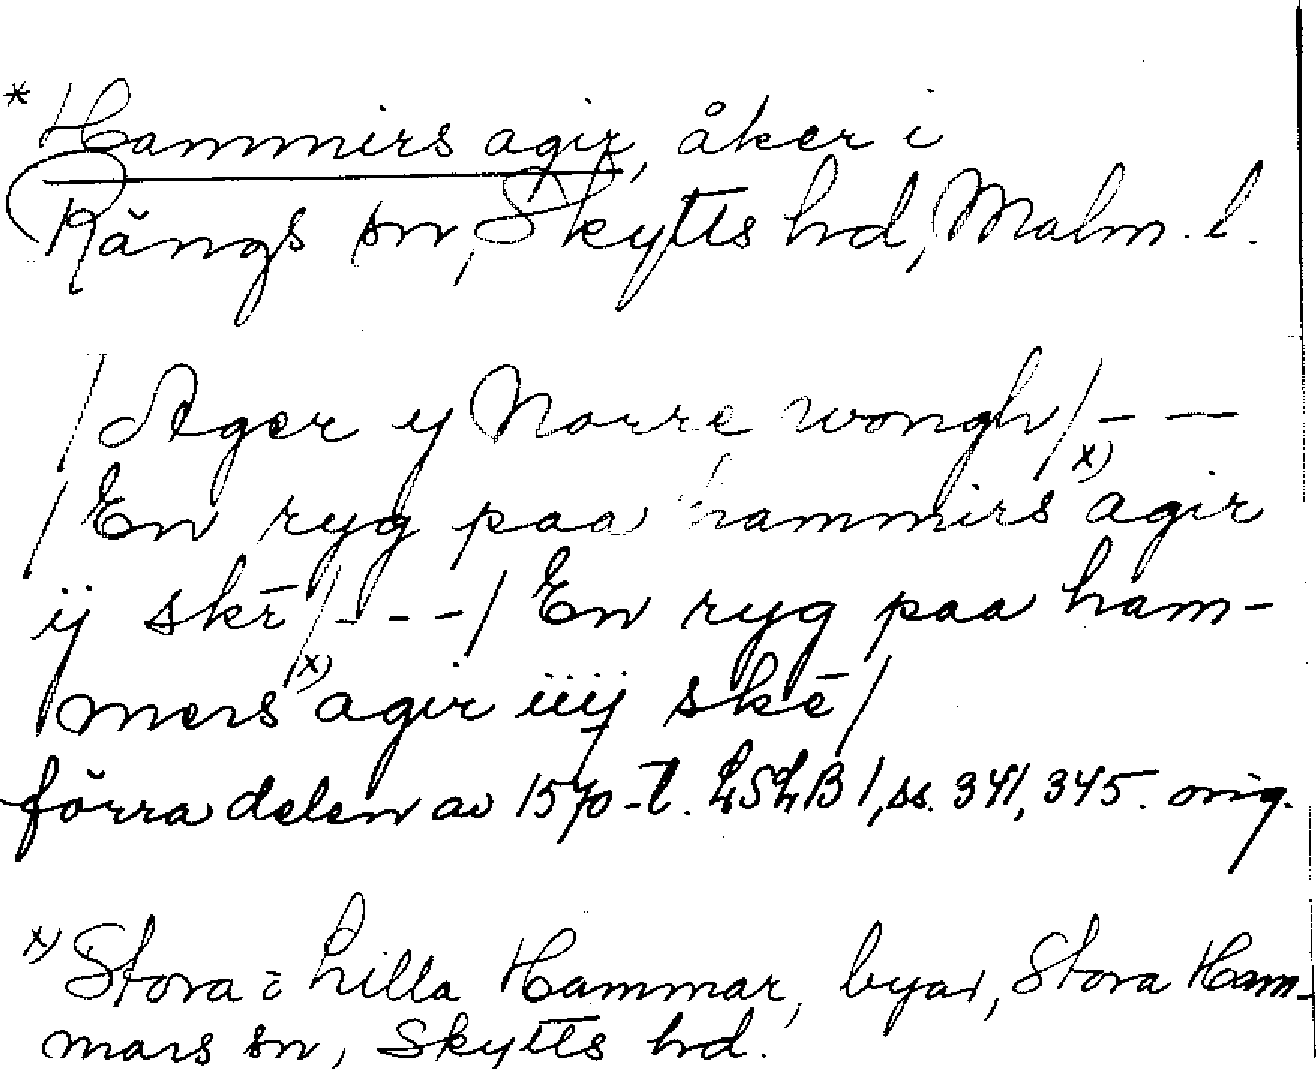 * Hammirs agir, åker i
Rängs sn, Skytts hd, Malm. l.
/Ager y Norre wongh/ – –
/En ryg paa hammirs x) agir
ij skē/ - - -/ En ryg paa ham-
mers x) agir iiij skē/
förra delen av 1570-t. LSLB 1, ss. 341, 345. orig.
x) Stora o Lilla Hammar, byar, Stora Ham-
mars sn, Skytts hd.